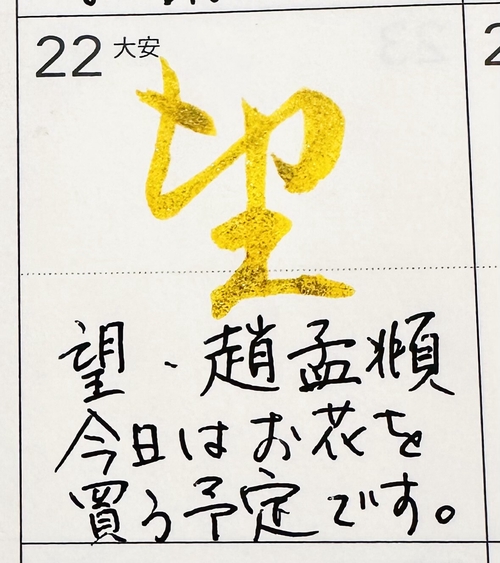 22 大安
望
望、趙孟頫
今日はお花を
買う予定です。